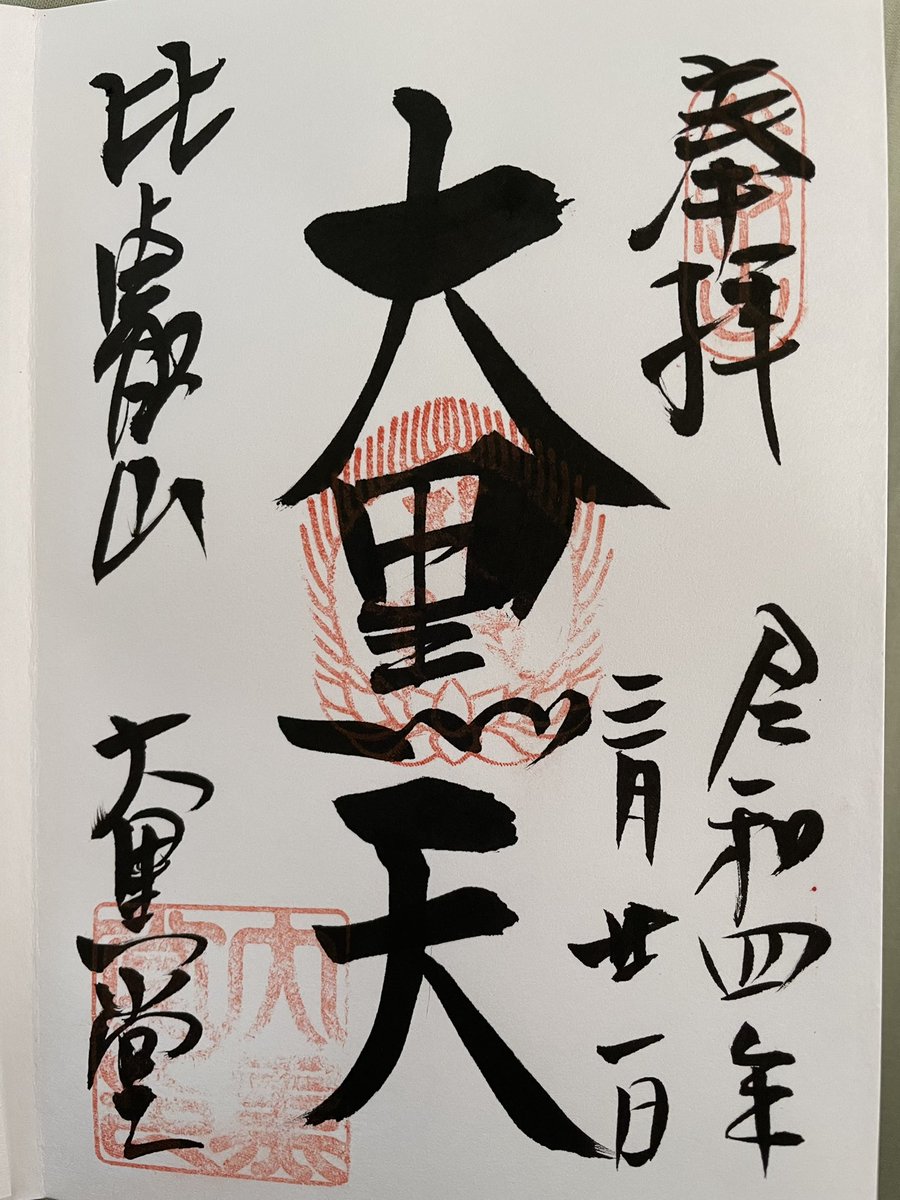 奉拝
令和四年
三月廿一日
大黒天
比叡山
大黒堂